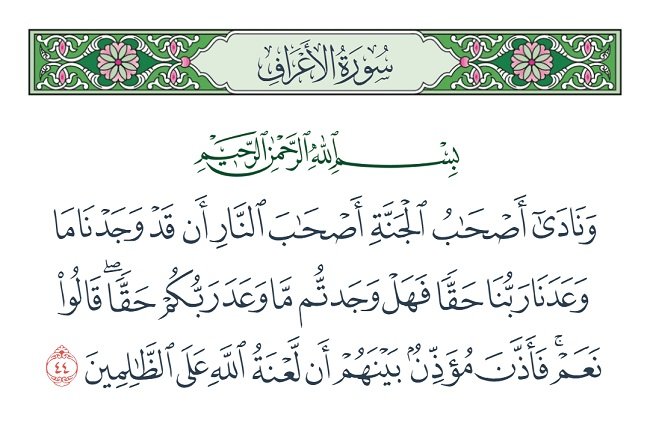 سُورَةُ الْأَعْرَافِ
بِسْمِ ٱللَّهِ ٱلرَّحْمَٰنِ ٱلرَّحِيمِ
وَنَادَىٰٓ أَصْحَٰبُ ٱلْجَنَّةِ أَصْحَٰبَ ٱلنَّارِ أَن قَدْ وَجَدْنَا مَا
وَعَدَنَا رَبُّنَا حَقًّا فَهَلْ وَجَدتُّم مَّا وَعَدَ رَبُّكُمْ حَقًّا ۖ قَالُوا۟
نَعَمْ ۚ فَأَذَّنَ مُؤَذِّنٌۢ بَيْنَهُمْ أَن لَّعْنَةُ ٱللَّهِ عَلَى ٱلظَّٰلِمِينَ ٤٤